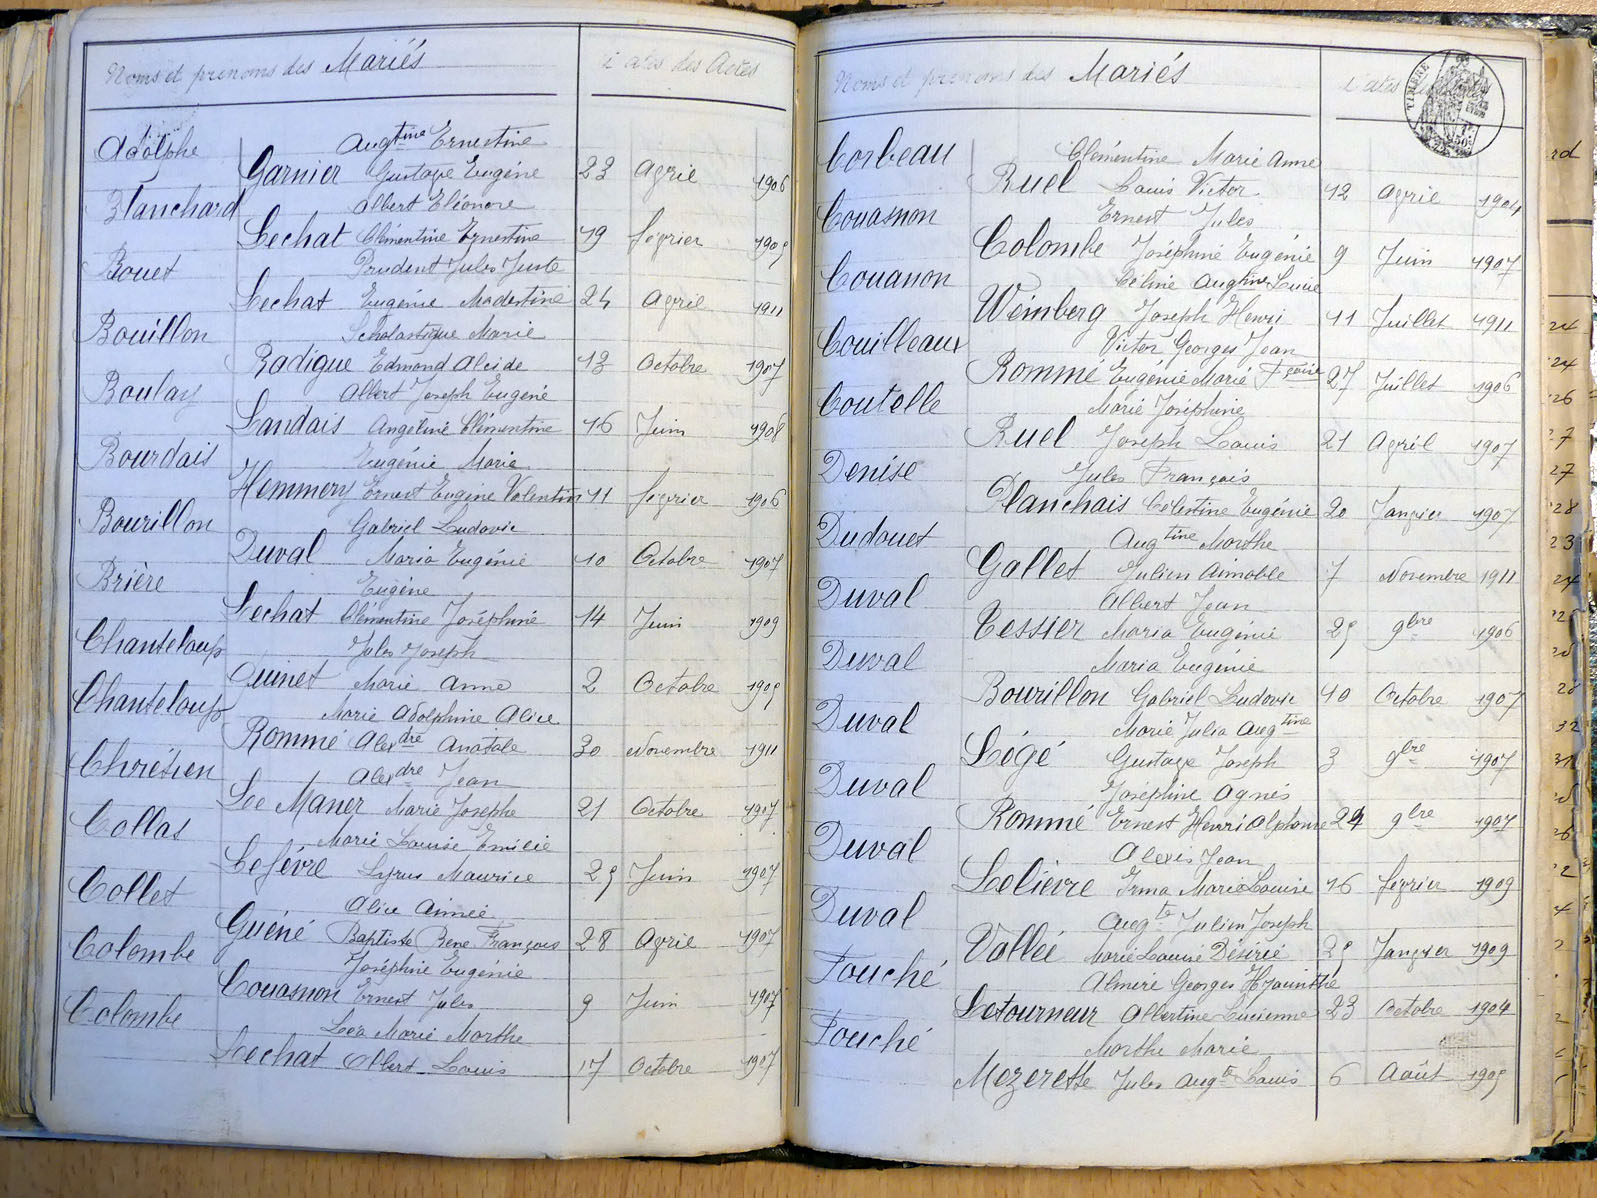 Noms et prenoms des Mariés
Dates des Actes
Adolphe Augtine Ernestine
Garnier Gustave Eugène 23 Avril 1906
Blanchard Albert Eléonore
Lechat Clémentine Ernestine 19 février 1905
Bouet Prudent Jules Juste
Lechat Eugénie Modestine 24 Avril 1911
Bouillon Scholastique Marie
Radigue Edmond Alcide 13 Octobre 1907
Boulay Albert Joseph Eugène
Landais Angeline Clémentine 16 Juin 1908
Bourdais Eugénie Marie
Hemmery Ernest Eugène Valentin 11 février 1906
Bourillon Gabriel Ludovic
Duval Maria Eugénie 10 Octobre 1907
Brière Eugène
Lechat Clémentine Joséphine 14 Juin 1909
Chanteloup Jules Joseph
Quinet Marie Anne 2 Octobre 1905
Chanteloup Marie Adolphine Alice
Rommé Alexdre Anatole 30 Novembre 1911
Chrétien Alexdre Jean
Le Maner Marie Josephe 21 Octobre 1907
Collas Marie Louise Emilie
Lefévre Cyrus Maurice 25 Juin 1907
Collet Alice Aimée
Guéné Baptiste Rene François 28 Avril 1907
Colombe Joséphine Eugénie
Couasnon Ernest Jules 9 Juin 1907
Colombe Léa Marie Marthe
Lechat Albert Louis 17 Octobre 1907
Noms et prenoms des Mariés
Dates
TIMBRE
Corbeau Clémentine Marie Anne
Ruel Louis Victor 12 Avril 1904
Couasnon Ernest Jules
Colombe Joséphine Eugénie 9 Juin 1907
Couanon Céline Augtine Lucie
Weimberg Joseph Henri 11 Juillet 1911
Couilleaux Victor Georges Jean
Rommé Eugénie Marie Fçoise 27 Juillet 1906
Coutelle Marie Joséphine
Ruel Joseph Louis 21 Avril 1907
Denise Jules François
Planchais Célestine Eugénie 20 Janvier 1907
Dudouet Augtine Marthe
Gallet Julien Aimable 7 Novembre 1911
Duval Albert Jean
Tessier Maria Eugénie 25 9bre 1906
Duval Maria Eugénie
Bourillon Gabriel Ludovic 10 Octobre 1907
Duval Marie Julia Augtine
Légé Gustave Joseph 3 9bre 1907
Duval Joséphine Agnès
Rommé Ernest Henri Alphonse 24 9bre 1907
Duval Alexis Jean
Lelièvre Irma Marie Louise 16 février 1909
Duval Augte Julien Joseph
Vallée Marie Louise Désirée 25 Janvier 1909
Fouché Almire Georges Hyacinthe
Letourneur Albertine Lucienne 23 Octobre 1904
Fouché Marthe Marie
Mezerette Jules Augte Louis 6 Août 1905